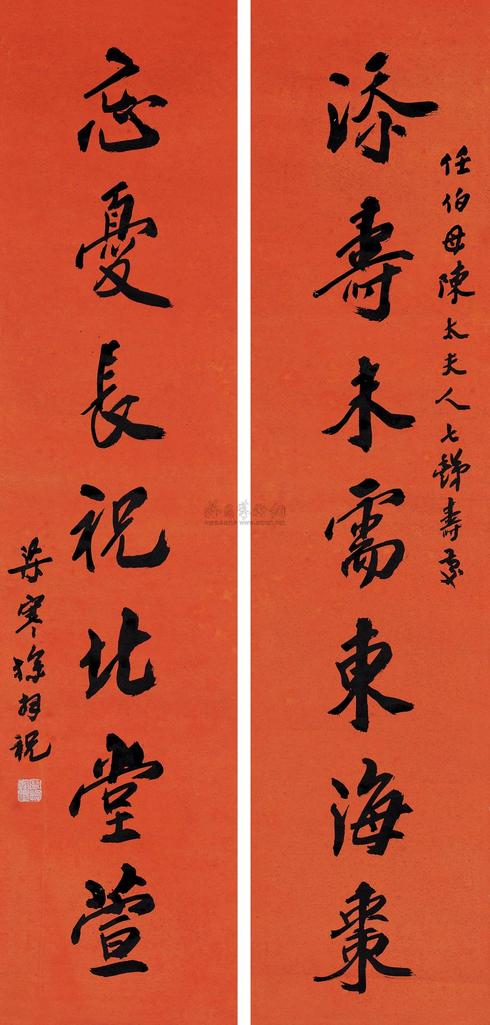 任伯母陳太夫人七豑壽慶
添壽未需東海棗
忘憂長祝北堂萱
梁寒操拜祝